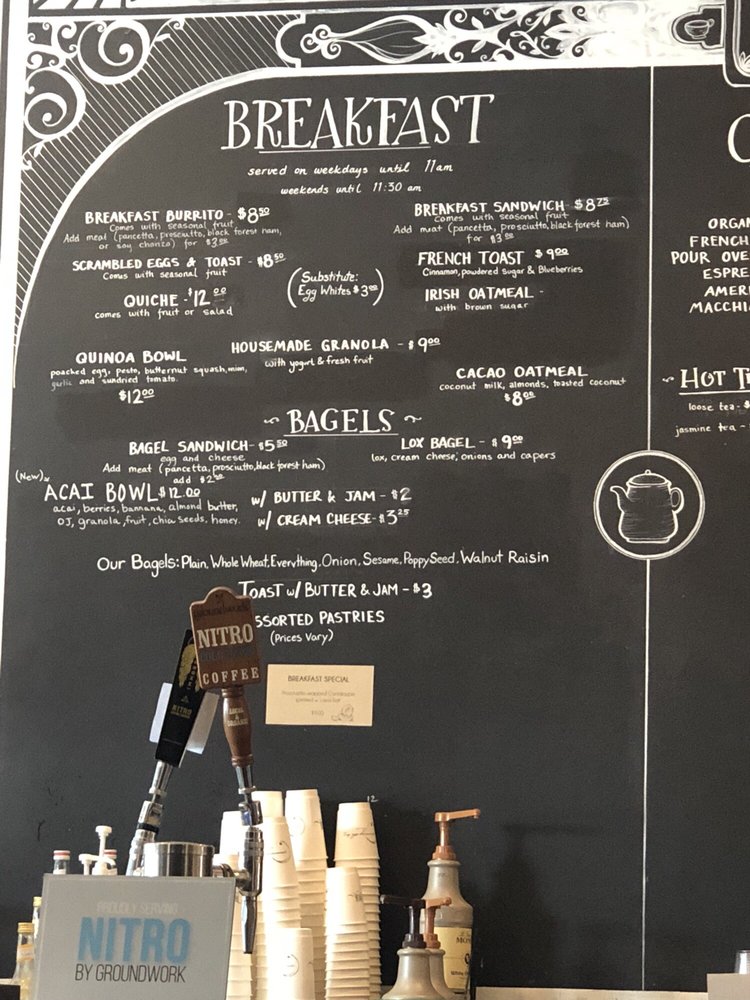 BREAKFAST
served on weekdays until 11am
weekends until 11:30 am
BREAKFAST BURRITO - $8.50
Comes with seasonal fruit
Add meat (pancetta, prosciutto, black forest ham,
or soy chorizo) for $3.00
SCRAMBLED EGGS & TOAST - $8.50
Comes with seasonal fruit
QUICHE - $12.00
comes with fruit or salad
(Substitute:
Egg Whites $3.00)
BREAKFAST SANDWICH - $8.75
Comes with seasonal fruit
Add meat (pancetta, prosciutto, black forest ham)
for $3.00
FRENCH TOAST $9.00
Cinnamon, powdered sugar & Blueberries
IRISH OATMEAL -
with brown sugar
HOUSEMADE GRANOLA - $9.00
with yogurt & fresh fruit
QUINOA BOWL
poached egg, pesto, butternut squash,
garlic and sundried tomato.
$12.00
CACAO OATMEAL
coconut milk, almonds, toasted coconut
$8.00
~ BAGELS ~
BAGEL SANDWICH - $5.50
egg and cheese
Add meat (pancetta, prosciutto, black forest ham)
add $2.00
LOX BAGEL - $9.00
lox, cream cheese, onions and capers
(New)
ACAI BOWL $12.00
acai, berries, bannana, almond butter,
OJ, granola, fruit, chia seeds, honey.
w/ BUTTER & JAM - $2
w/ CREAM CHEESE - $3.25
Our Bagels: Plain, Whole Wheat, Everything, Onion, Sesame, Poppy Seed, Walnut Raisin
TOAST w/ BUTTER & JAM - $3
SSORTED PASTRIES
(Prices Vary)
BREAKFAST SPECIAL
ORGAN
FRENCH
POUR OVE
ESPRE
AMER
MACCHI
~ HOT T
loose tea - $
jasmine tea -
NITRO
COFFEE
NITRO
12
PROUDLY SERVING
NITRO
BY GROUNDWORK